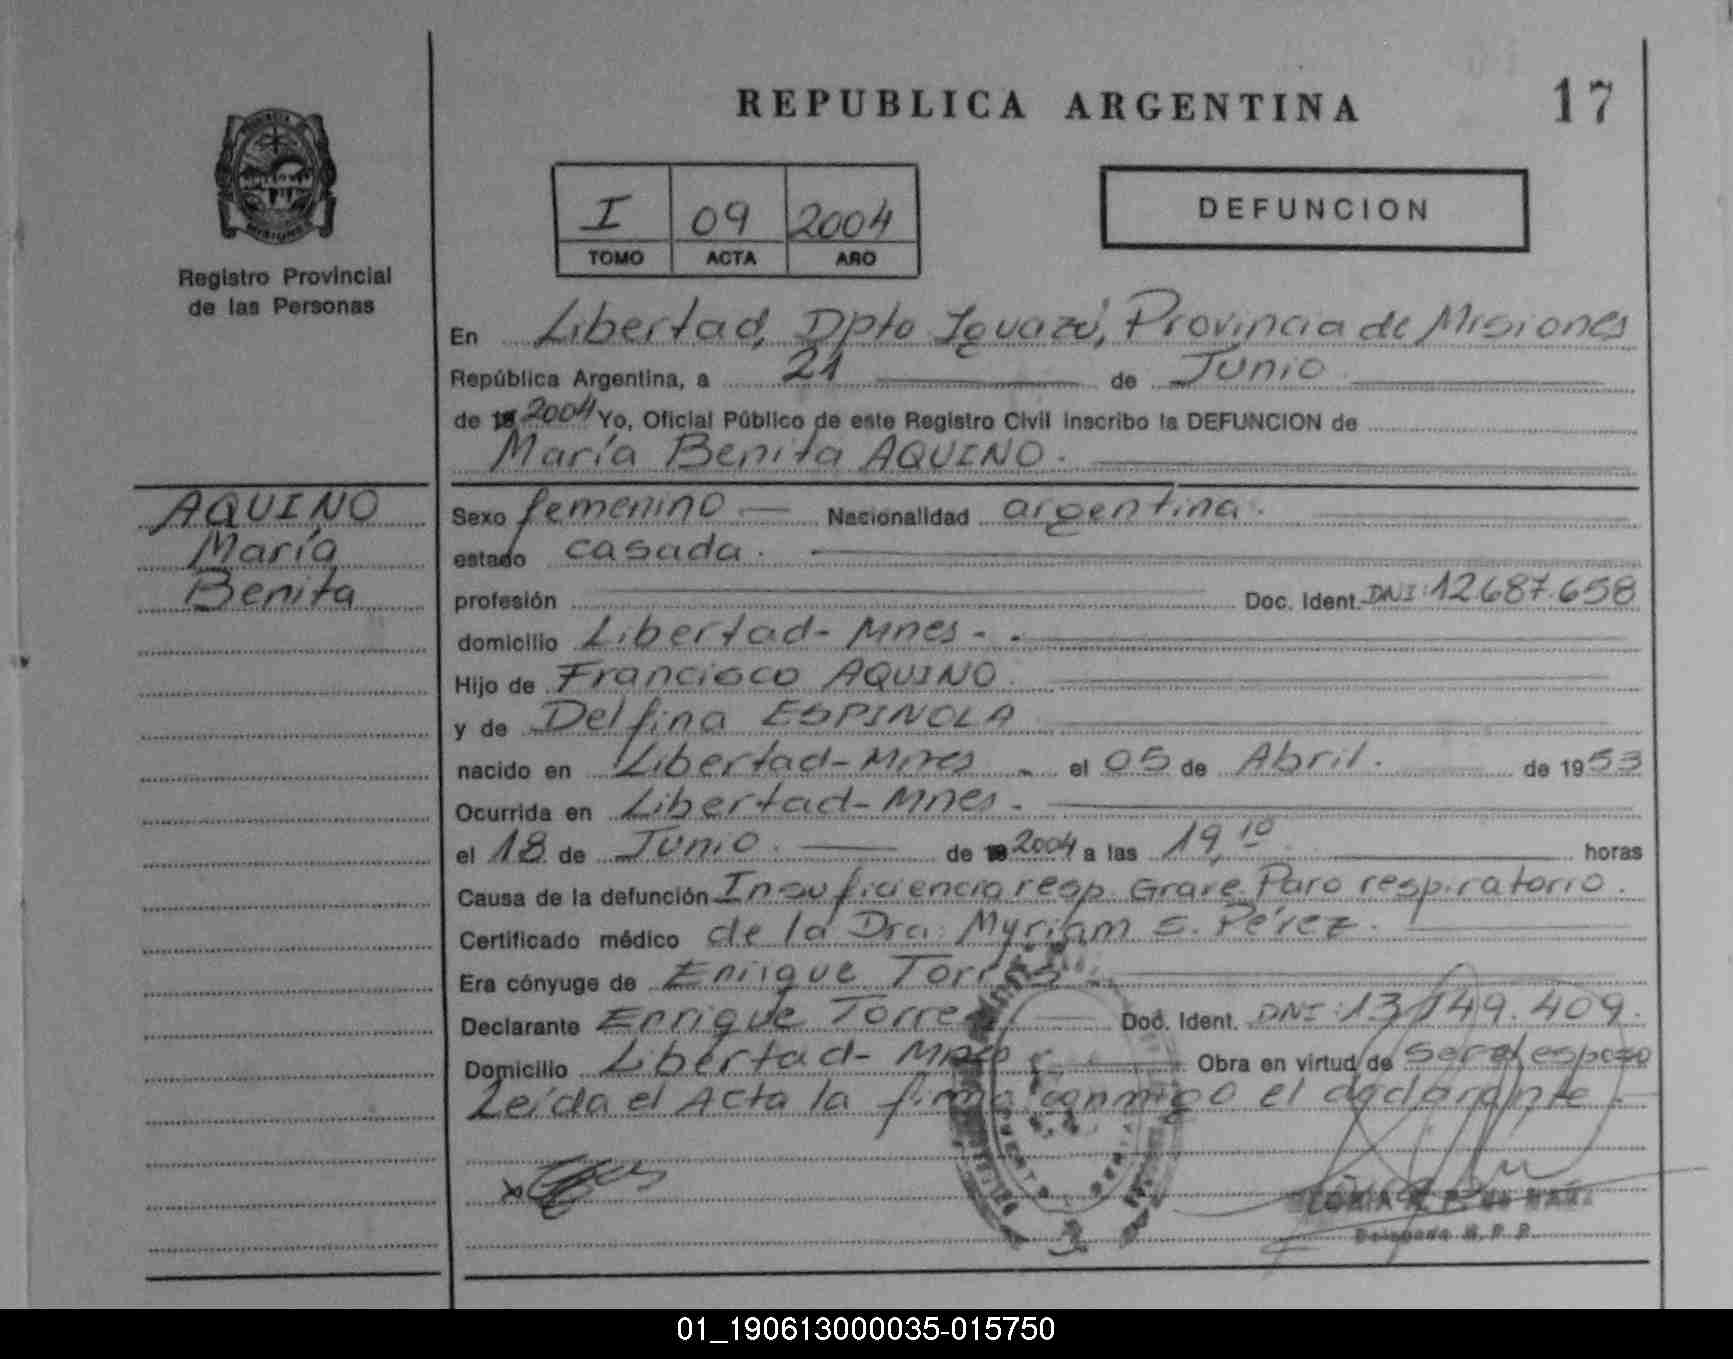 REPUBLICA ARGENTINA
17
Registro Provincial
de las Personas
I 09 2004
TOMO ACTA AÑO
DEFUNCION
En Libertad, Dpto Iguazú, Provincia de Misiones
República Argentina, a 21 de Junio
de 19 2004 Yo, Oficial Público de este Registro Civil inscribo la DEFUNCION de
María Benita AQUINO.
AQUINO
María
Benita
Sexo femenino Nacionalidad argentina.
estado casada.
profesión Doc. Ident. DNI: 12.687.658
domicilio Libertad- Mnes.
Hijo de Francisco AQUINO.
y de Delfina ESPINOLA
nacido en Libertad-Mnes el 05 de Abril. de 1953
Ocurrida en Libertad-Mnes.
el 18 de Junio. de 19 2004 a las 19,10 horas
Causa de la defunción Insuficiencia resp. Grave. Paro respiratorio.
Certificado médico de la Dra: Myriam S. Pérez.
Era cónyuge de Enrique Torres
Declarante Enrique Torres Doc. Ident. DNI: 13.149.409.
Domicilio Libertad- Mnes Obra en virtud de ser el esposo
Leída el Acta la firma conmigo el declarante
Delegada R. P. P.
01_190613000035-015750